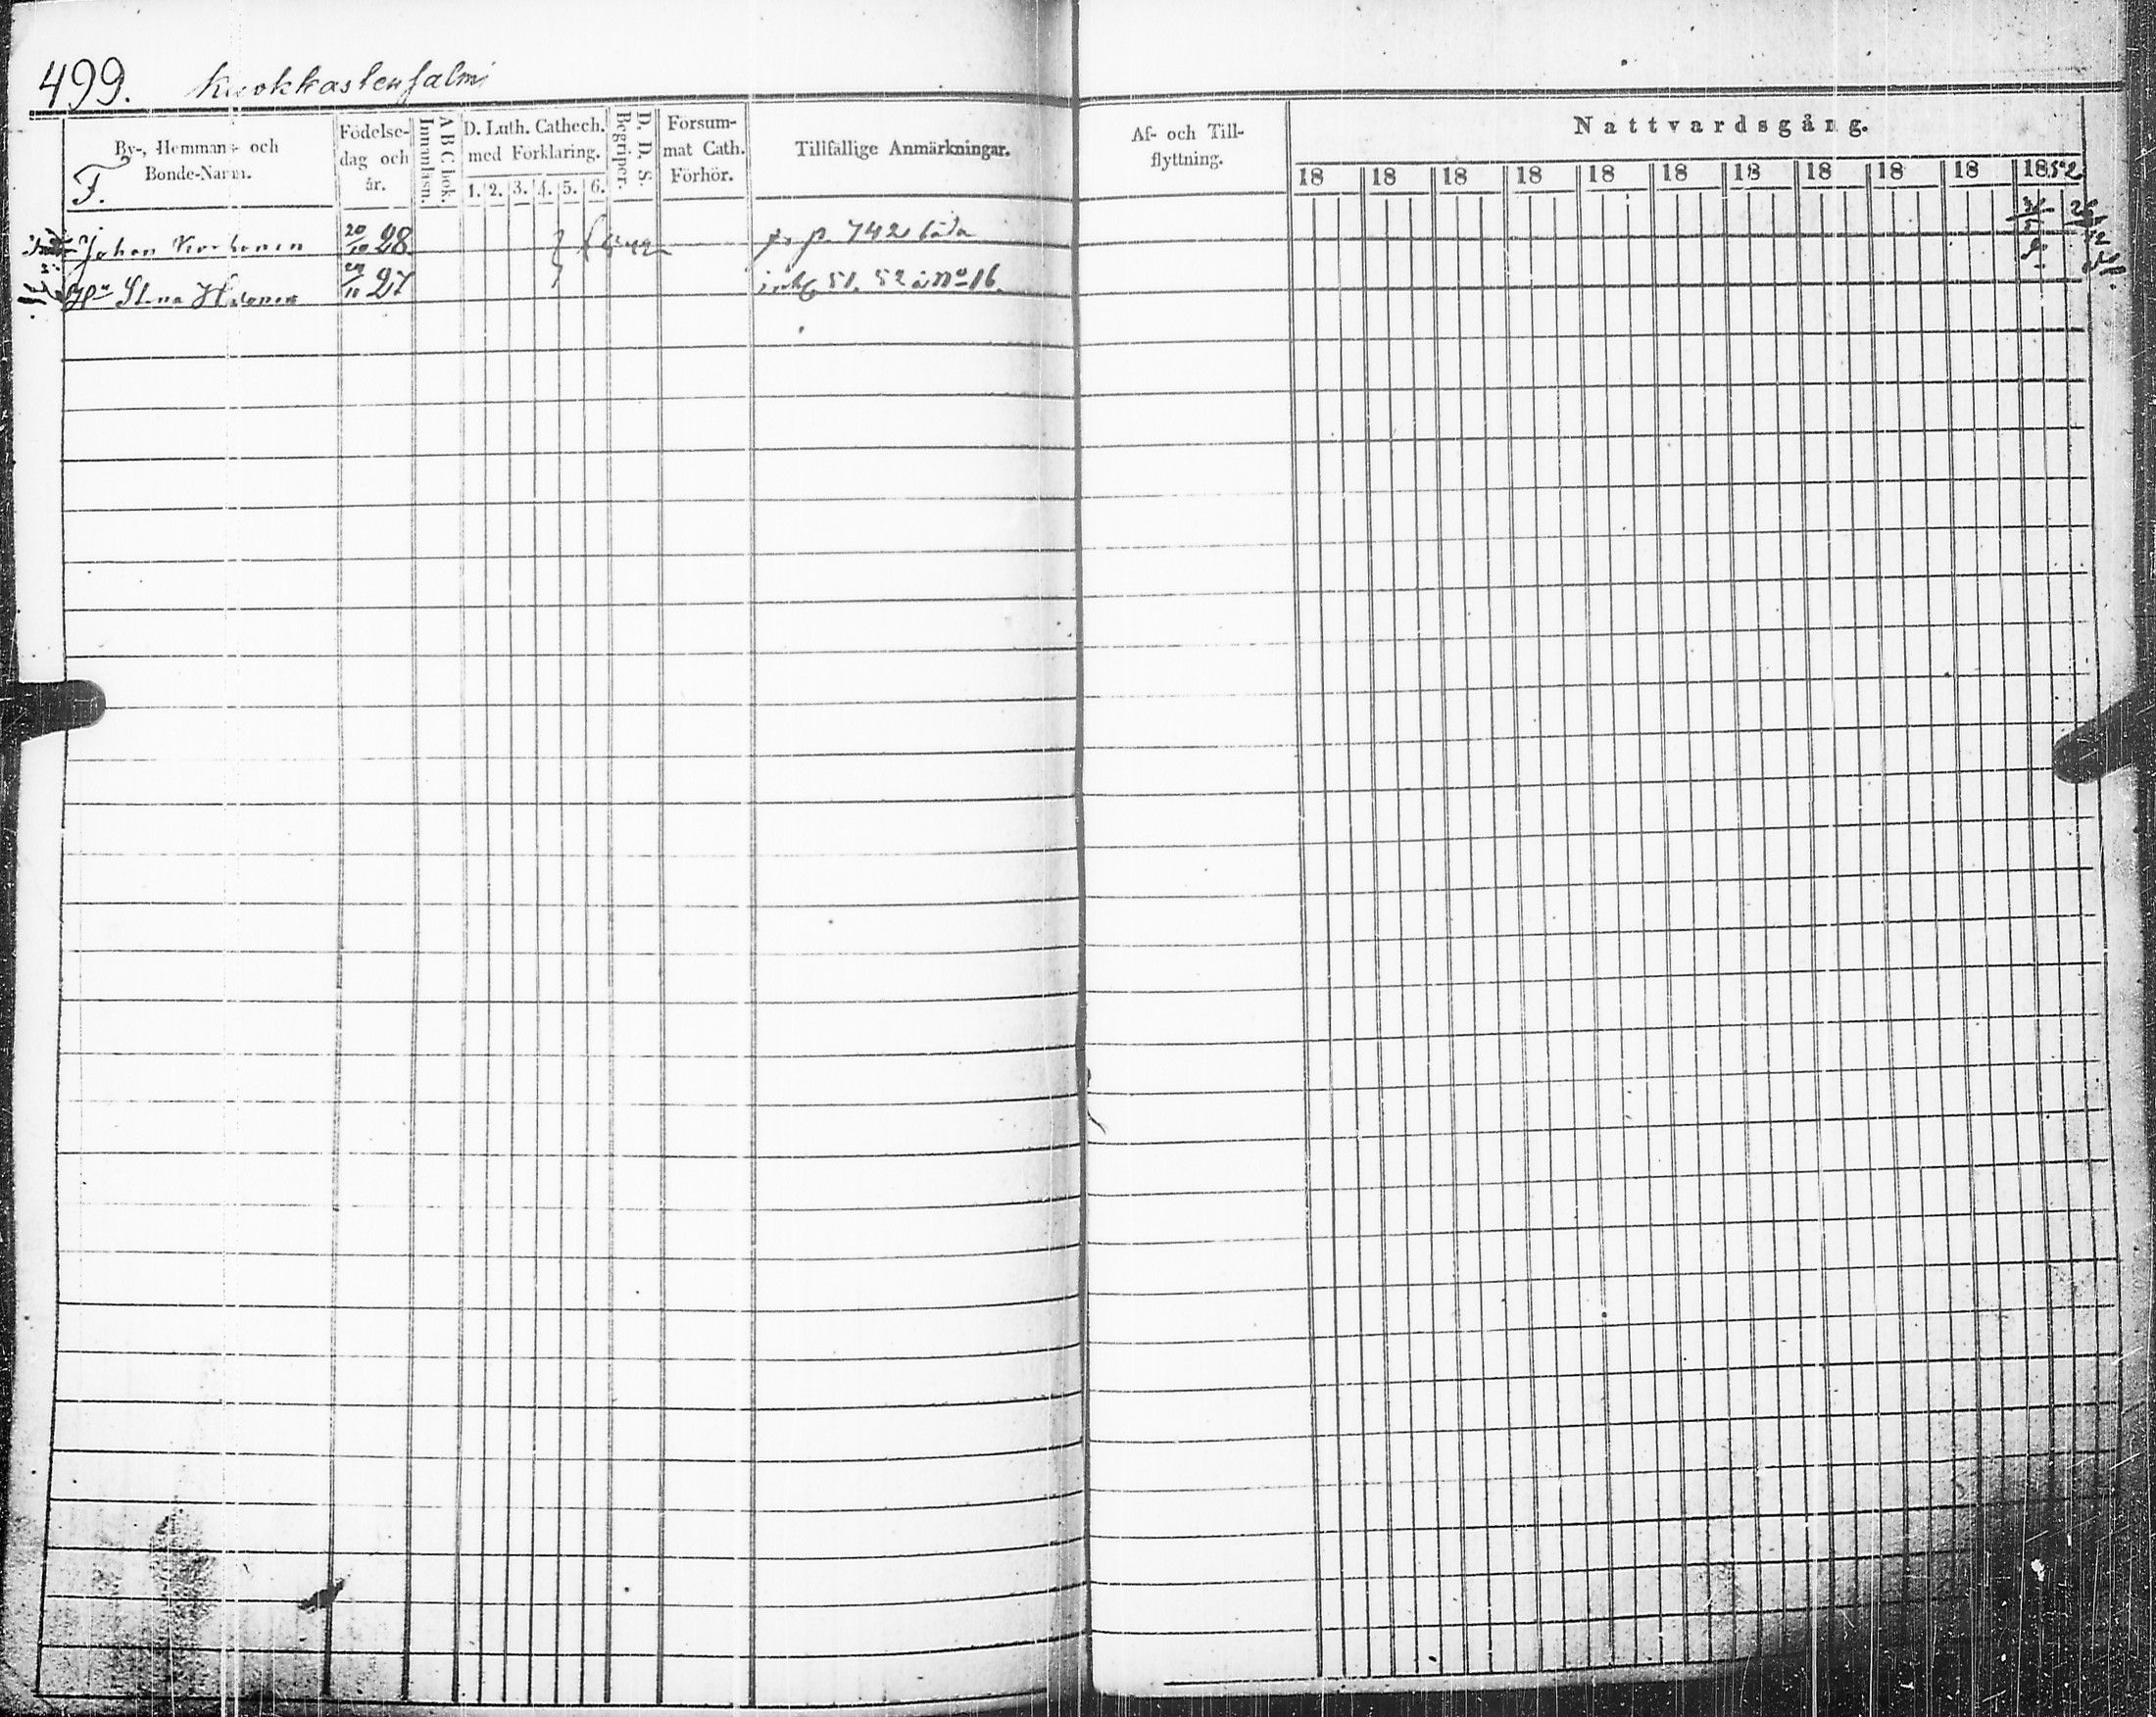 499. Kuokkastensalmi
By-, Hemmans- och
Bonde-Namn.
F.
Födelse-
dag och
år.
Innanläsn.
A B C bok.
D. Luth. Cathech.
med Förklaring.
1. 2. 3. 4. 5. 6.
Begriper.
D. D. S.
Försum-
mat Cath.
Förhör.
Tillfällige Anmärkningar.
Af- och Till-
flyttning.
Nattvardsgång.
18 18 18 18 18 18 18 18 18 18 1852
Johan Korhonen 20/10 28 p. 742 båda
Hu Stina 27 51. 52 a No 16.